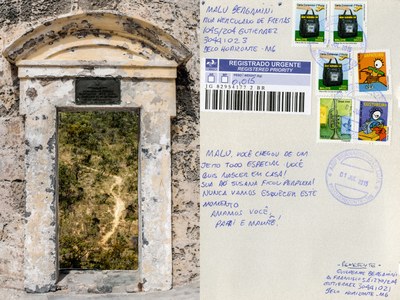 MALU BERGAMINI
RUA HERCULANO DE FREITAS
GUTIERREZ
30441023
BELO HORIZONTE - MG
REGISTRADO URGENTE
REGISTERED PRIORITY
0,015
JG 82954577 2 BR
MALU, VOCÊ CHEGOU DE UM
JEITO TODO ESPECIAL. VOCÊ
QUIS NASCER EM CASA!
SUA VÓ SUSANA FICOU PERPLEXA!
NUNCA VAMOS ESQUECER ESTE
MOMENTO
AMAMOS VOCÊ,
PAPAI E MAMÃE!
REMETENTE:
GUILHERME BERGAMINI
GUTIERREZ
BELO HORIZONTE - MG